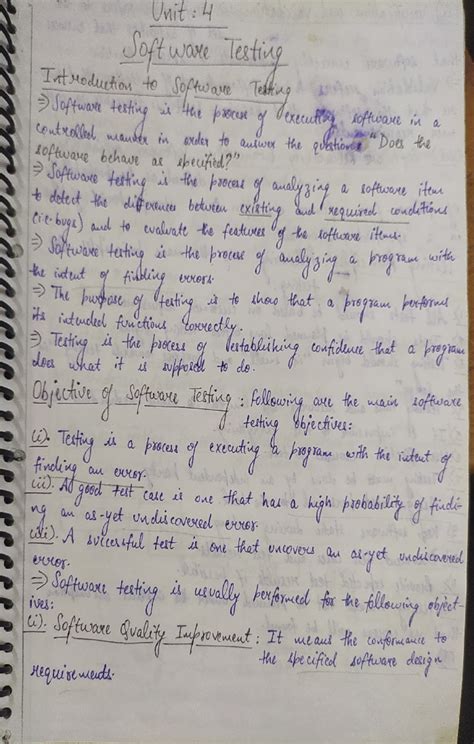 Unit : 4
Software Testing
Introduction to Software Testing
⇒ Software testing is the process of executing software in a
controlled manner in order to answer the question "Does the
software behave as specified?"
⇒ Software testing is the process of analyzing a software item
to detect the differences between existing and required conditions
(i.e-bugs) and to evaluate the features of the software items.
⇒ Software testing is the process of analyzing a program with
the intent of finding errors.
⇒ The purpose of testing is to show that a program performs
its intended functions correctly.
⇒ Testing is the process of establishing confidence that a program
does what it is supposed to do.
Objective of Software Testing : Following are the main software
testing objectives:
(i). Testing is a process of executing a program with the intent of
finding an error.
(ii). A good test case is one that has a high probability of findi-
ng an as-yet undiscovered error.
(iii). A successful test is one that uncovers an as-yet undiscovered
error.
⇒ Software testing is usually performed for the following object-
ives:
(i). Software Quality Improvement : It means the conformance to
the specified software design
requirements.